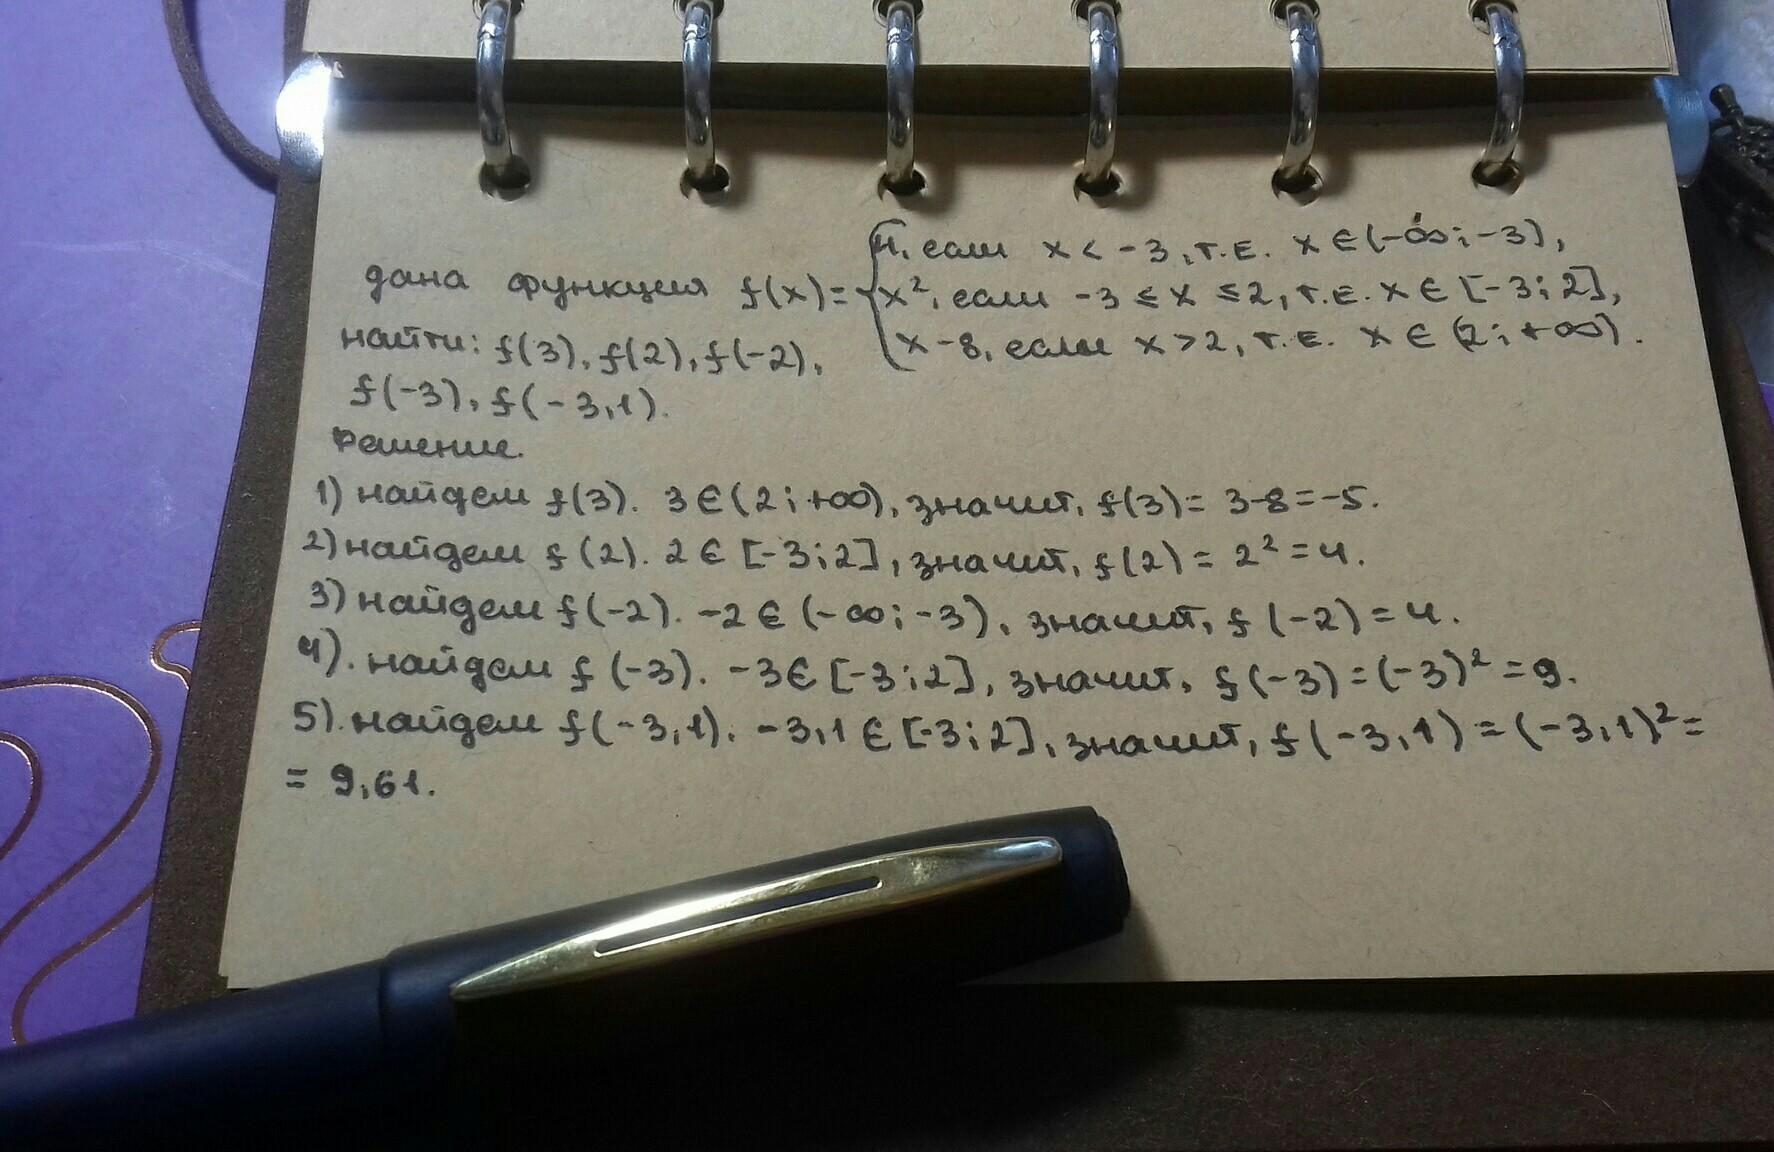 дана функция f(x)= { 4, если x < -3, т.е. x ∈ (-∞; -3),
x², если -3 ≤ x ≤ 2, т.е. x ∈ [-3; 2],
x-8, если x > 2, т.е. x ∈ (2; +∞).
найти: f(3), f(2), f(-2),
f(-3), f(-3,1).
Решение.
1) найдем f(3). 3 ∈ (2; +∞), значит, f(3) = 3-8 = -5.
2) найдем f(2). 2 ∈ [-3; 2], значит, f(2) = 2² = 4.
3) найдем f(-2). -2 ∈ (-∞; -3), значит, f(-2) = 4.
4). найдем f(-3). -3 ∈ [-3; 2], значит, f(-3) = (-3)² = 9.
5). найдем f(-3,1). -3,1 ∈ [-3; 2], значит, f(-3,1) = (-3,1)² =
= 9,61.